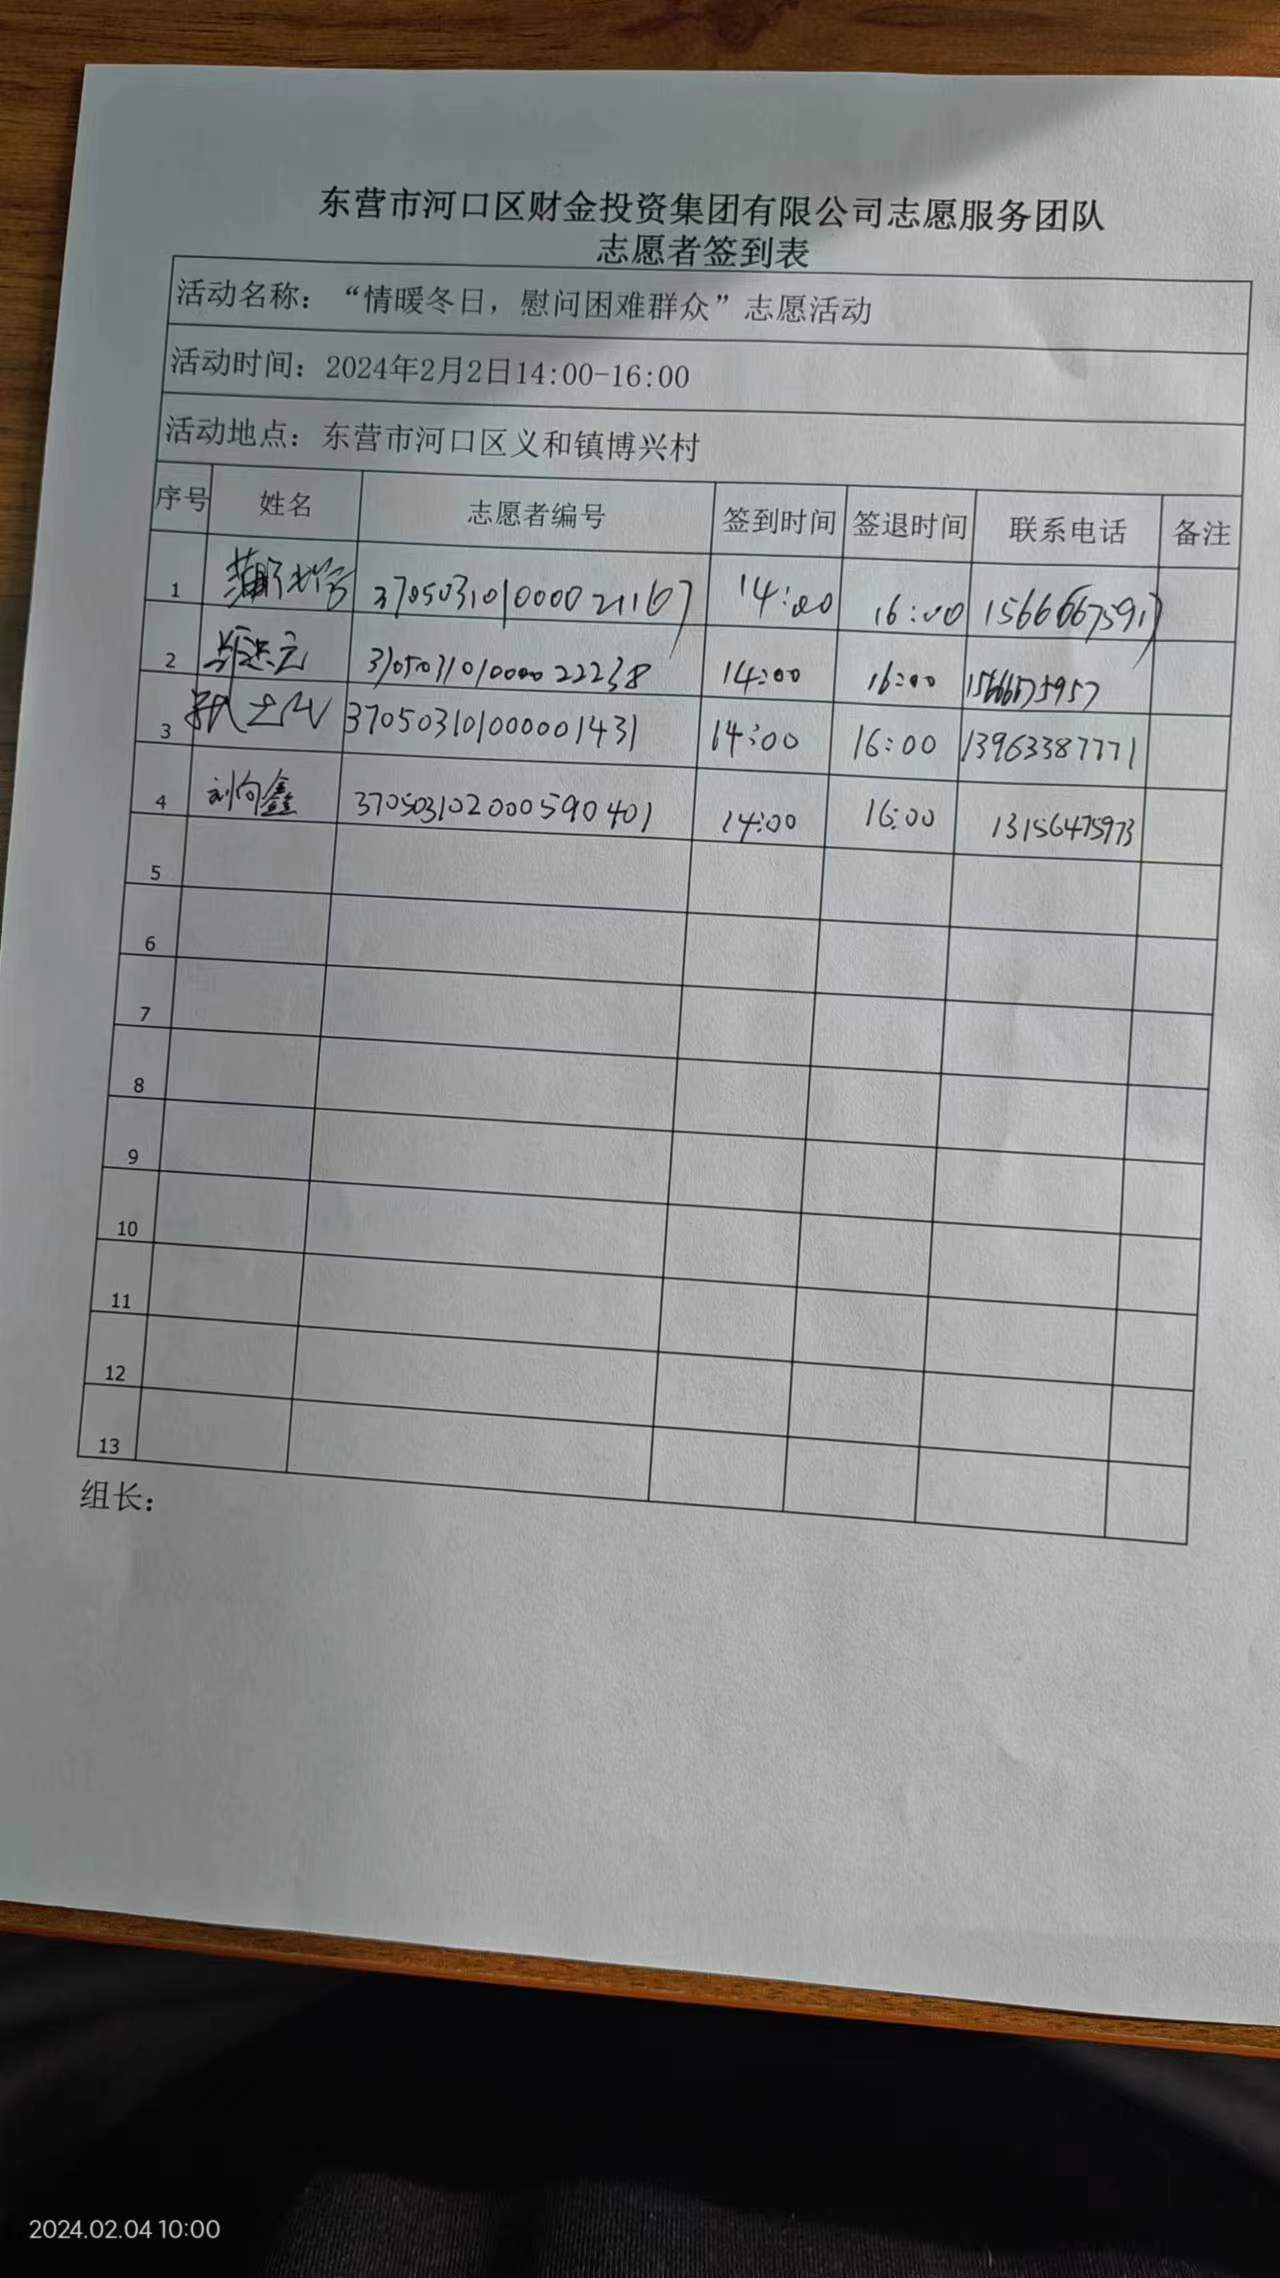 东营市河口区财金投资集团有限公司志愿服务团队
志愿者签到表
活动名称：“情暖冬日，慰问困难群众”志愿活动
活动时间：2024年2月2日14:00-16:00
活动地点：东营市河口区义和镇博兴村
序号 姓名 志愿者编号 签到时间 签退时间 联系电话 备注
1 3705031010000021167 14:00 16:00 15666667591
2 14:00 16:00
3 370503101000001431 14:00 16:00 13963387771
4 刘向鑫 370503102000590401 14:00 16:00 13156475973
5
6
7
8
9
10
11
12
13
组长：
2024.02.04 10:00